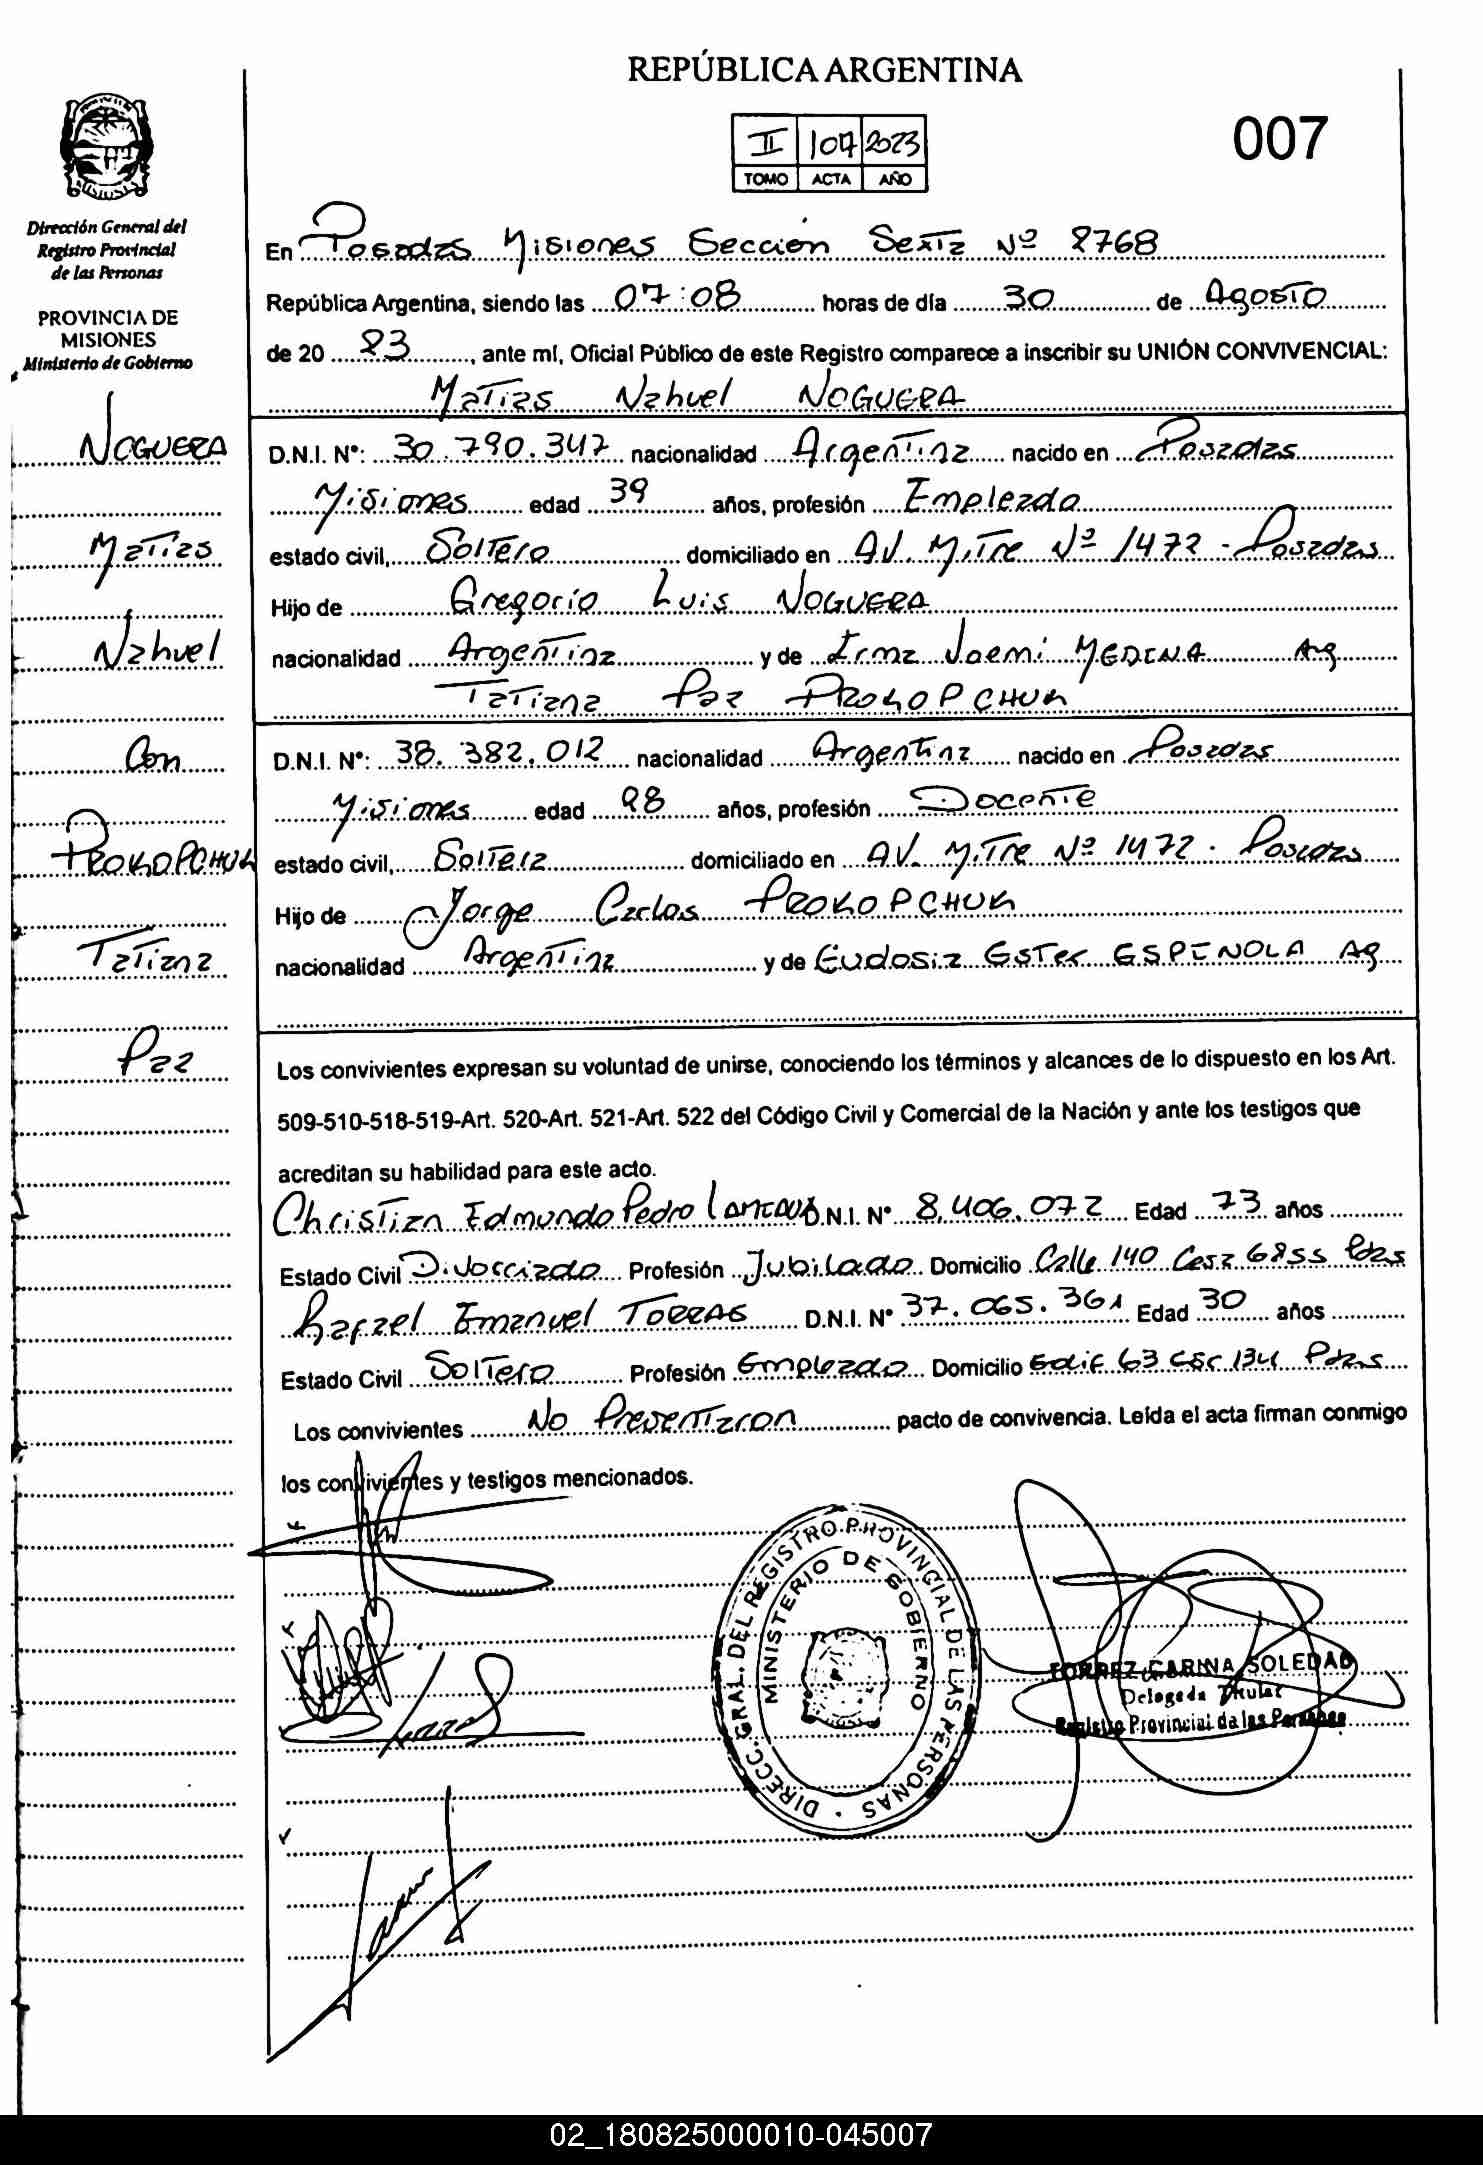 REPÚBLICA ARGENTINA
007
II 107 2023
TOMO ACTA AÑO
Dirección General del
Registro Provincial
de las Personas
PROVINCIA DE
MISIONES
Ministerio de Gobierno
NOGUERA
Matias
Nahuel
Con
PROKOPCHUK
Tatiana
Paz
En Posadas Misiones Sección Sexta Nº 2768
República Argentina, siendo las 07:08 horas de día 30 de Agosto
de 20 23, ante mí, Oficial Público de este Registro comparece a inscribir su UNIÓN CONVIVENCIAL:
Matias Nahuel NOGUERA
D.N.I. Nº: 30.790.347 nacionalidad Argentina nacido en Posadas
Misiones edad 39 años, profesión Empleado
estado civil, Soltero domiciliado en AV. Mitre Nº 1472 - Posadas
Hijo de Gregorio Luis NOGUERA
nacionalidad Argentina y de Irma Noemi MEDINA Ag
Tatiana Paz PROKOPCHUK
D.N.I. Nº: 38.382.012 nacionalidad Argentina nacido en Posadas
Misiones edad 28 años, profesión Docente
estado civil, Soltera domiciliado en AV. Mitre Nº 1472 - Posadas
Hijo de Jorge Carlos PROKOPCHUK
nacionalidad Argentina y de Eudosia Ester ESPINOLA Ag
Los convivientes expresan su voluntad de unirse, conociendo los términos y alcances de lo dispuesto en los Art.
509-510-518-519-Art. 520-Art. 521-Art. 522 del Código Civil y Comercial de la Nación y ante los testigos que
acreditan su habilidad para este acto.
Christian Edmundo Pedro D.N.I. Nº 8.406.072 Edad 73 años
Estado Civil Divorciado Profesión Jubilado Domicilio Calle 140 Casa 6855 Pdas
Rafael Emanuel TORRES D.N.I. Nº 37.065.361 Edad 30 años
Estado Civil Soltero Profesión Empleado Domicilio Edif 63 Esc 134 Pdas
Los convivientes No Presentaron pacto de convivencia. Leída el acta firman conmigo
los convivientes y testigos mencionados.
DIRECC. GRAL. DEL REGISTRO PROVINCIAL DE LAS PERSONAS
MINISTERIO DE GOBIERNO
TORREZ CARINA SOLEDAD
Delegada Titular
Registro Provincial de las Personas
02_180825000010-045007